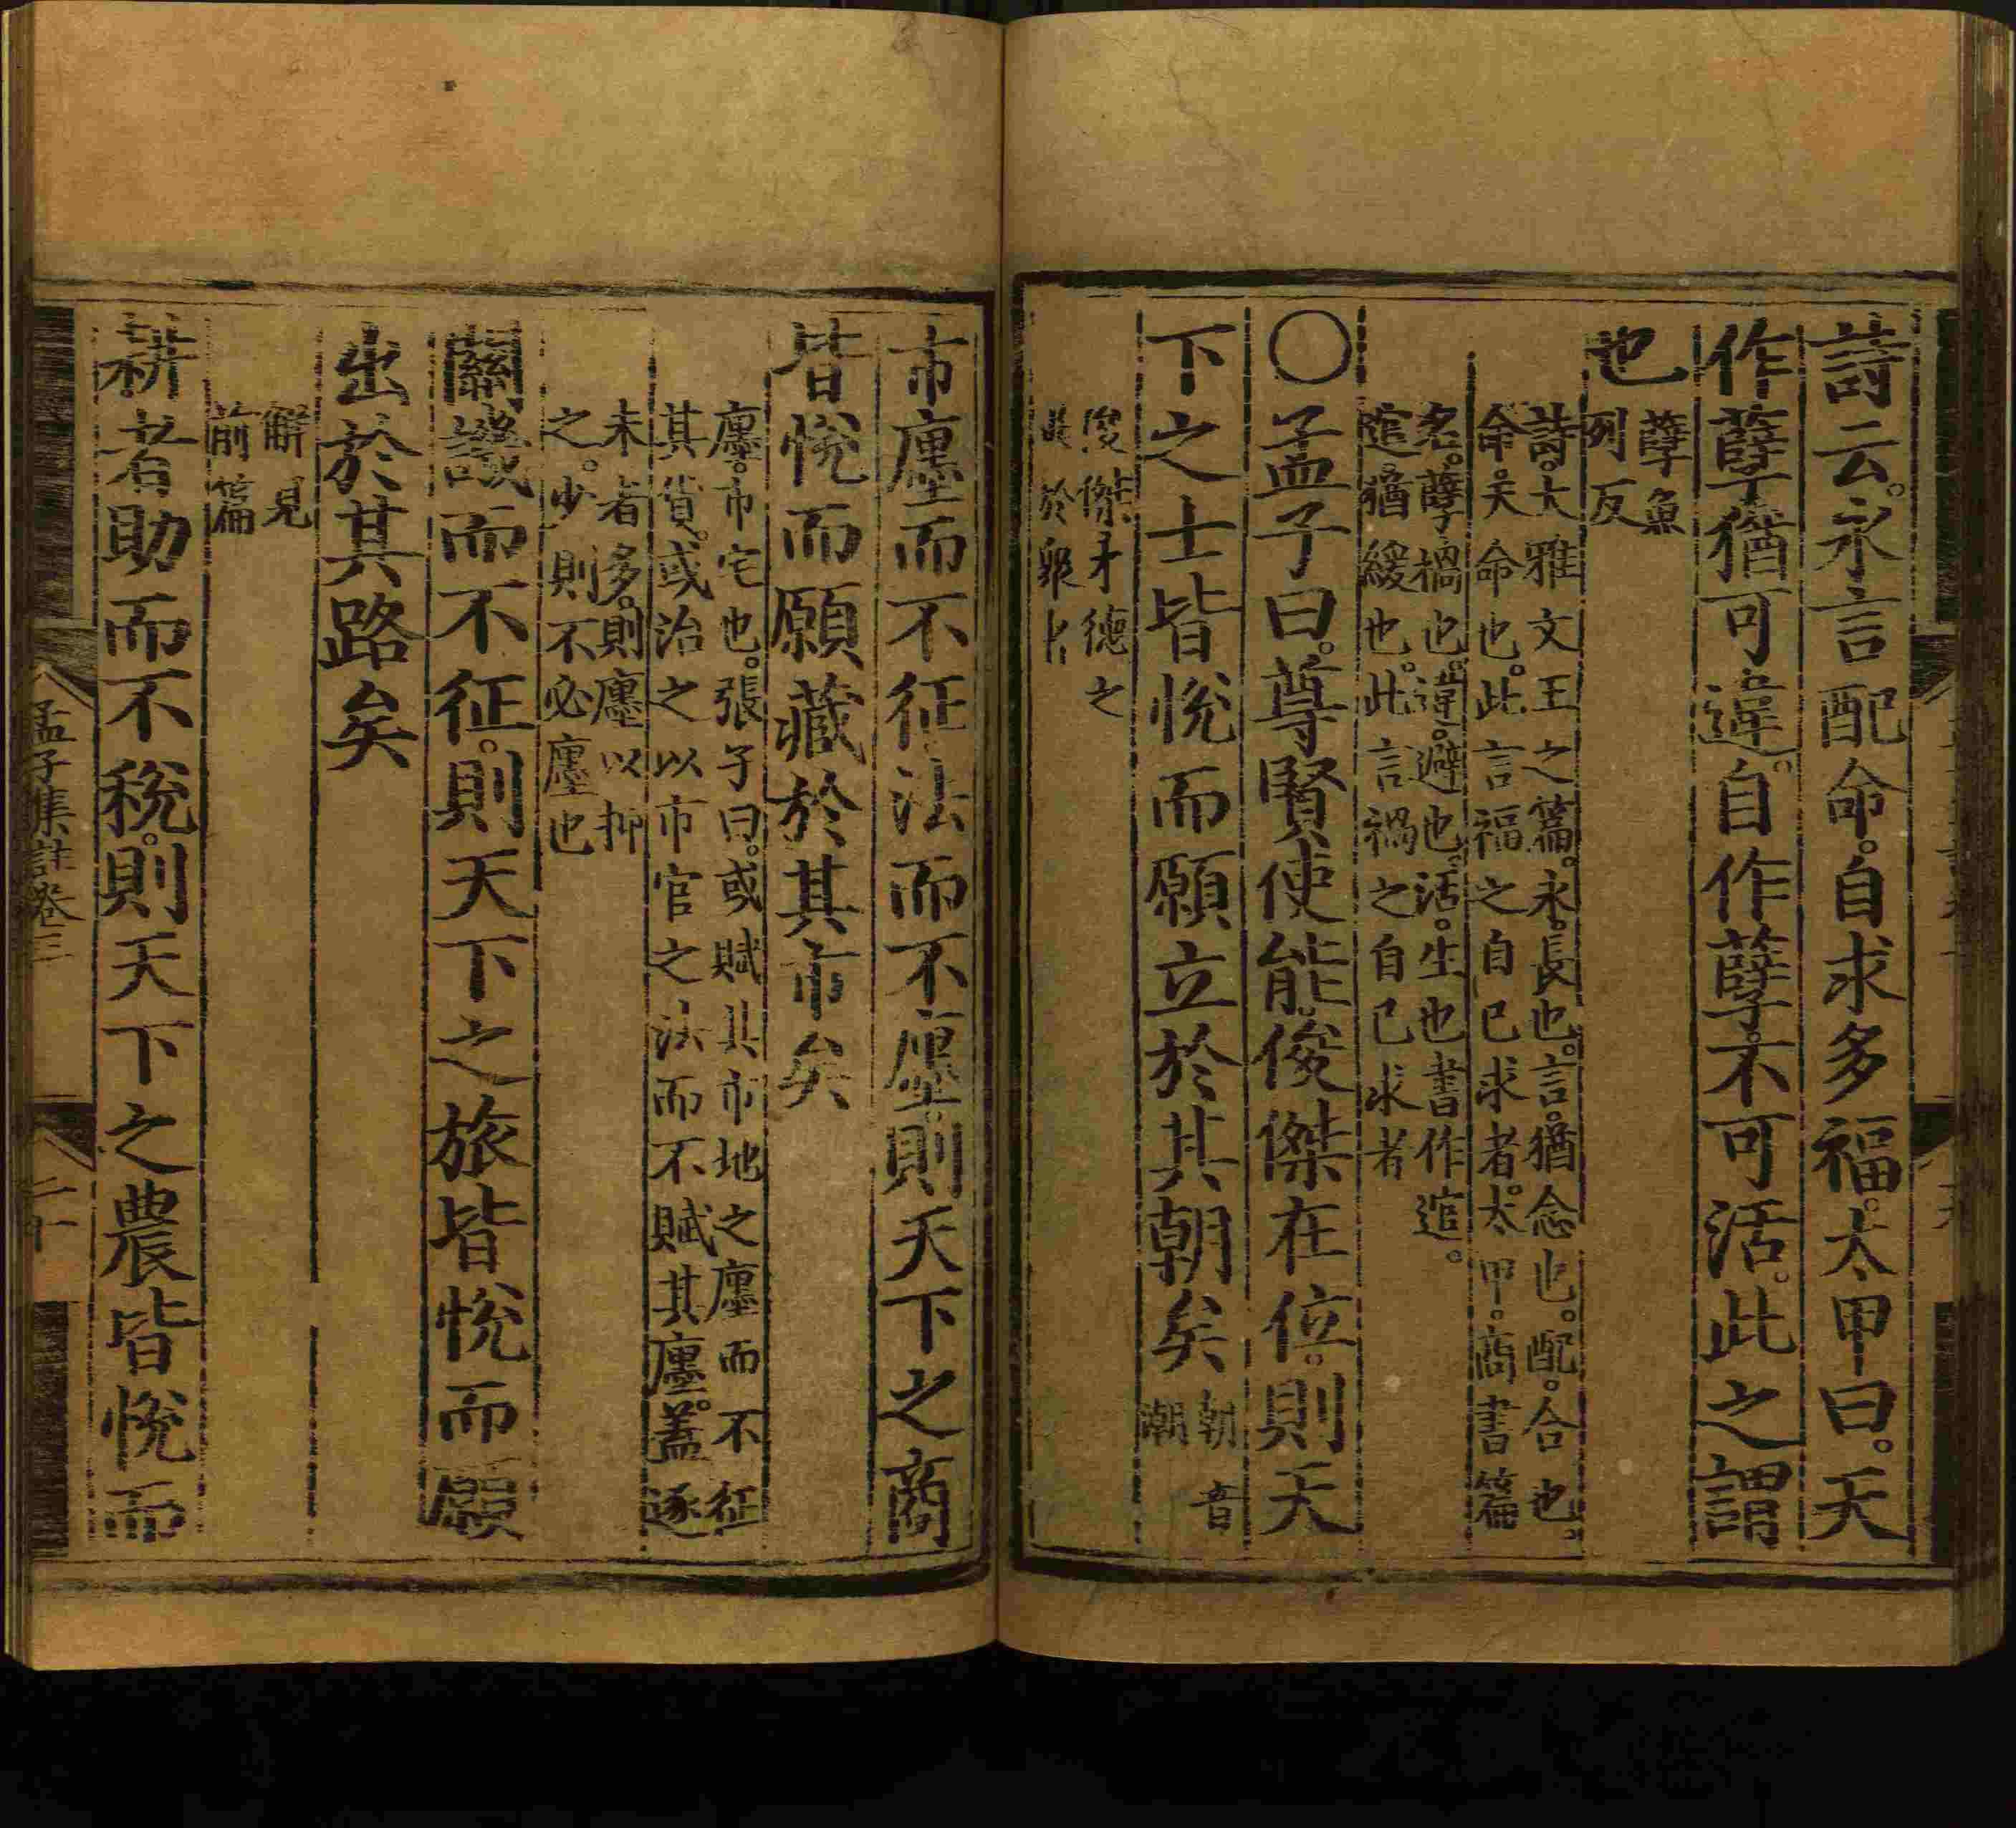 詩云。永言配命。自求多福。太甲曰。天
作孽猶可違。自作孽。不可活。此之謂
也
孽魚
列反
詩。大雅文王之篇。永。長也。言。猶念也。配。合也。
命。天命也。此言福之自己求者。太甲。商書篇
名。孽禍也。違。避也。活。生也書作逭。
逭。猶緩也。此言禍之自己求者
〇孟子曰。尊賢使能。俊傑在位。則天
下之士皆悅而願立於其朝矣
朝音
潮
俊傑才德之
異於衆者
市廛而不征法而不廛。則天下之商
皆悅而願藏於其市矣
廛。市宅也。張子曰。或賦其市地之廛而不征
其貨。或治之以市官之法而不賦其廛。蓋逐
末者多。則廛以抑
之。少則不必廛也
關譏而不征。則天下之旅皆悅而願
出於其路矣
解見
前篇
耕者助而不稅。則天下之農皆悅而
孟子集註卷三
二十